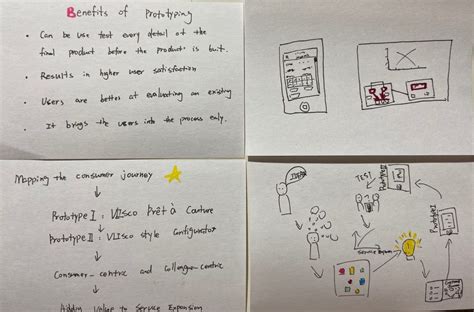 Benefits of Prototyping
• Can be use test every detail of the
final product before the product is buit.
• Results in higher user satisfaction
• Users are better at evaluating an existing
• It brings the users into the process early.
Mapping the consumer journey
Prototype I : Vlisco Prêt à Couture
Prototype II : Vlisco style Configurator
Consumer-centric and Colleague-centric
Adding Value to Service Expansion
IDEA
TEST
Prototype
Prototype
Service